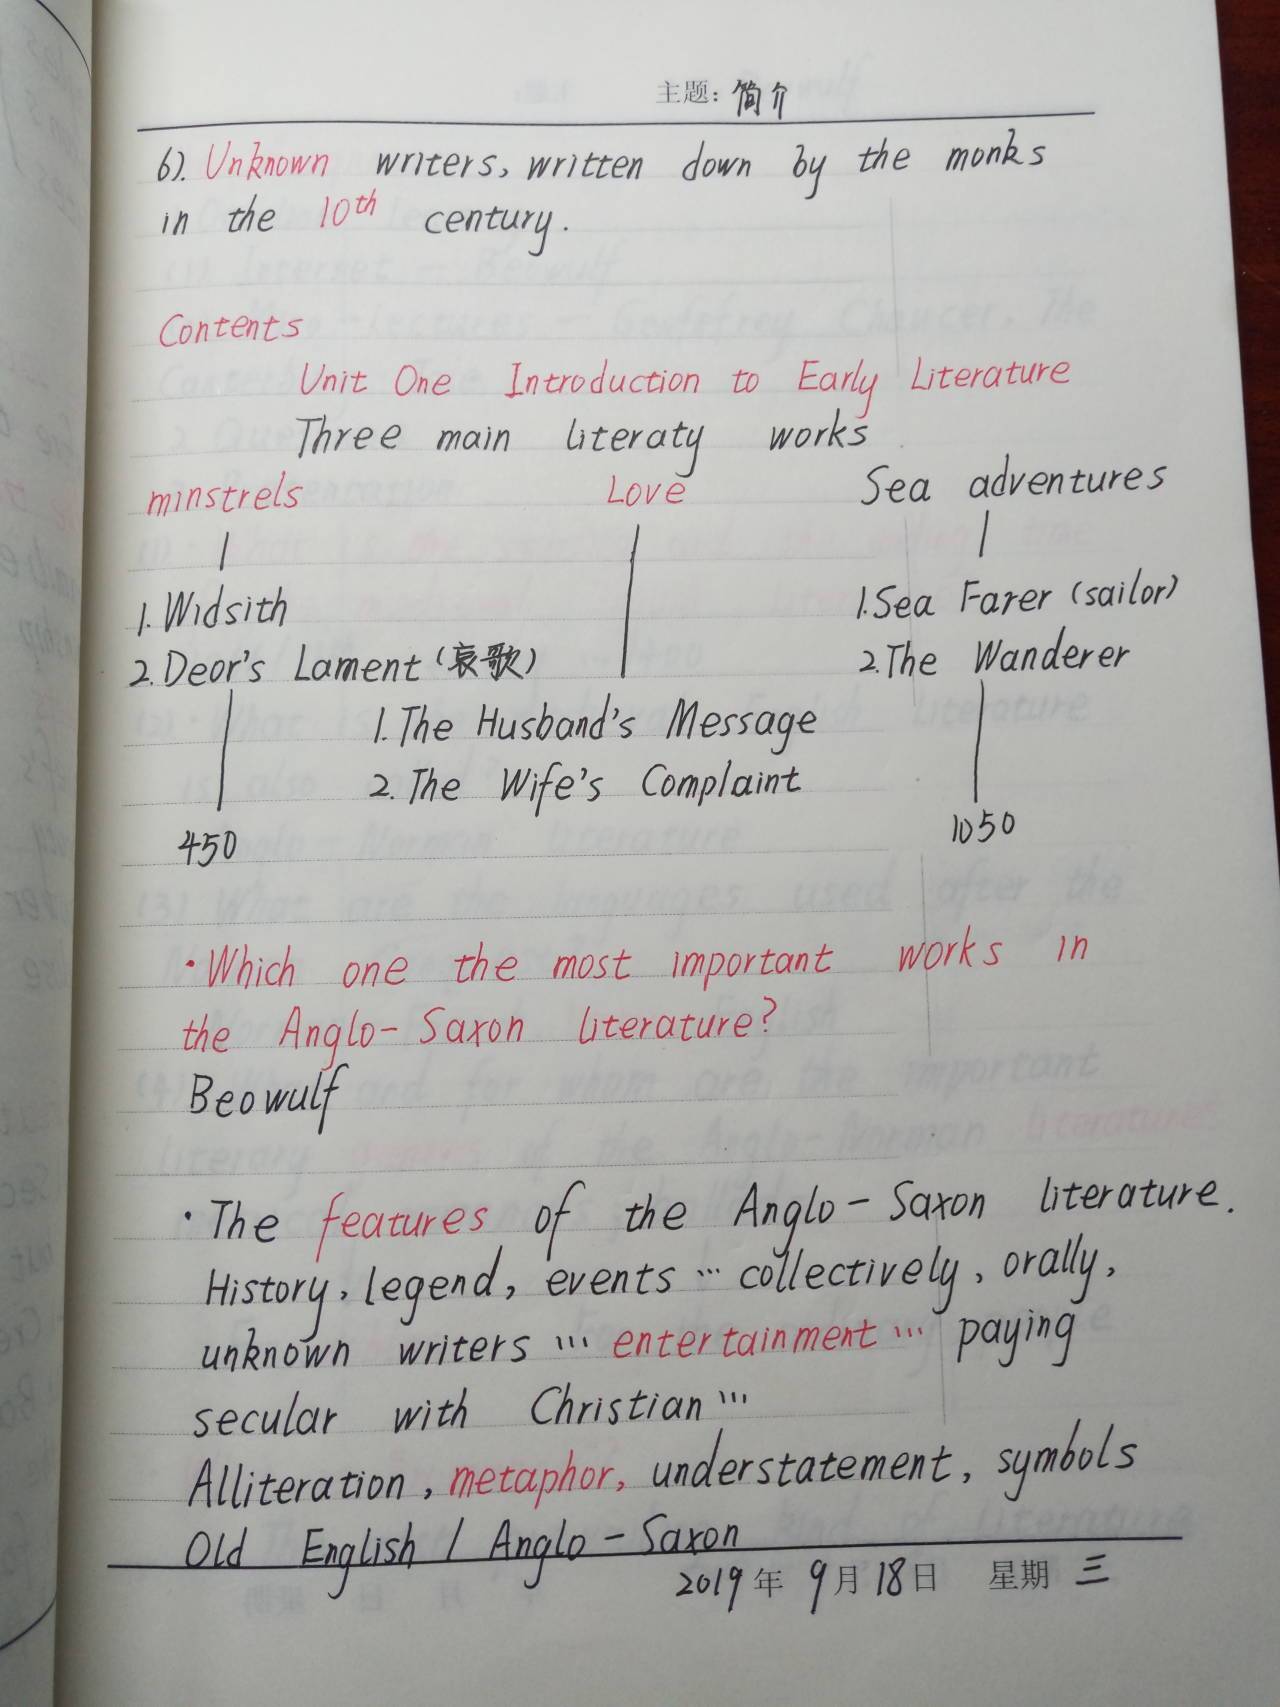 主题: 简介
6). Unknown writers, written down by the monks
in the 10th century.
Contents
Unit One Introduction to Early Literature
Three main literaty works
minstrels Love Sea adventures
1. Widsith 1. Sea Farer (sailor)
2. Deor's Lament (哀歌) 2. The Wanderer
1. The Husband's Message
2. The Wife's Complaint
450 1050
·Which one the most important works in
the Anglo-Saxon literature?
Beowulf
·The features of the Anglo-Saxon literature.
History, legend, events ... collectively, orally,
unknown writers ... entertainment ... paying
secular with Christian ...
Alliteration, metaphor, understatement, symbols
Old English / Anglo-Saxon
2019年 9月18日 星期 三